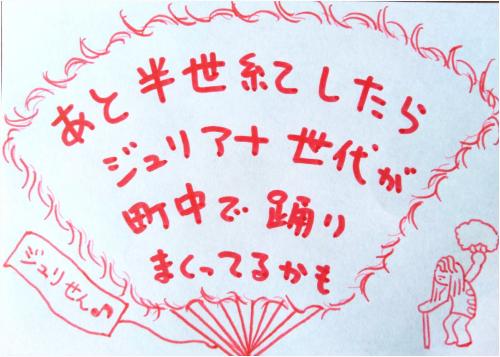 あと半世紀したら
ジュリアナ世代が
町中で踊り
まくってるかも
ジュリせん♪